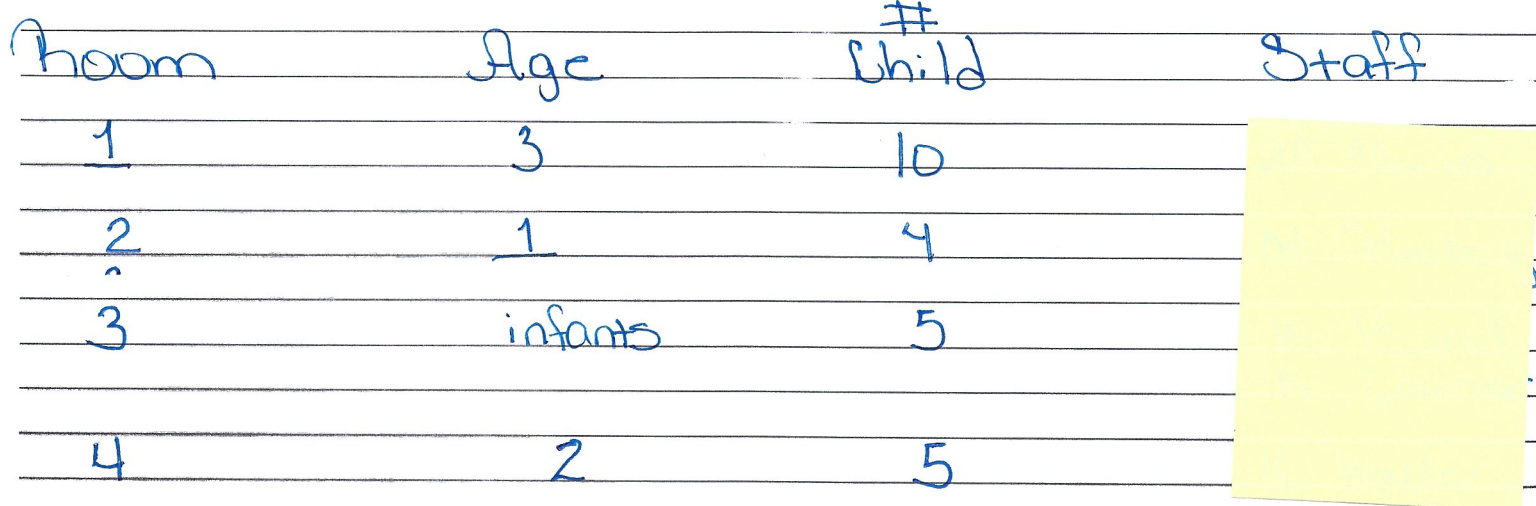 #
Room Age Child Staff
1 3 10
2 1 4
3 infants 5
4 2 5